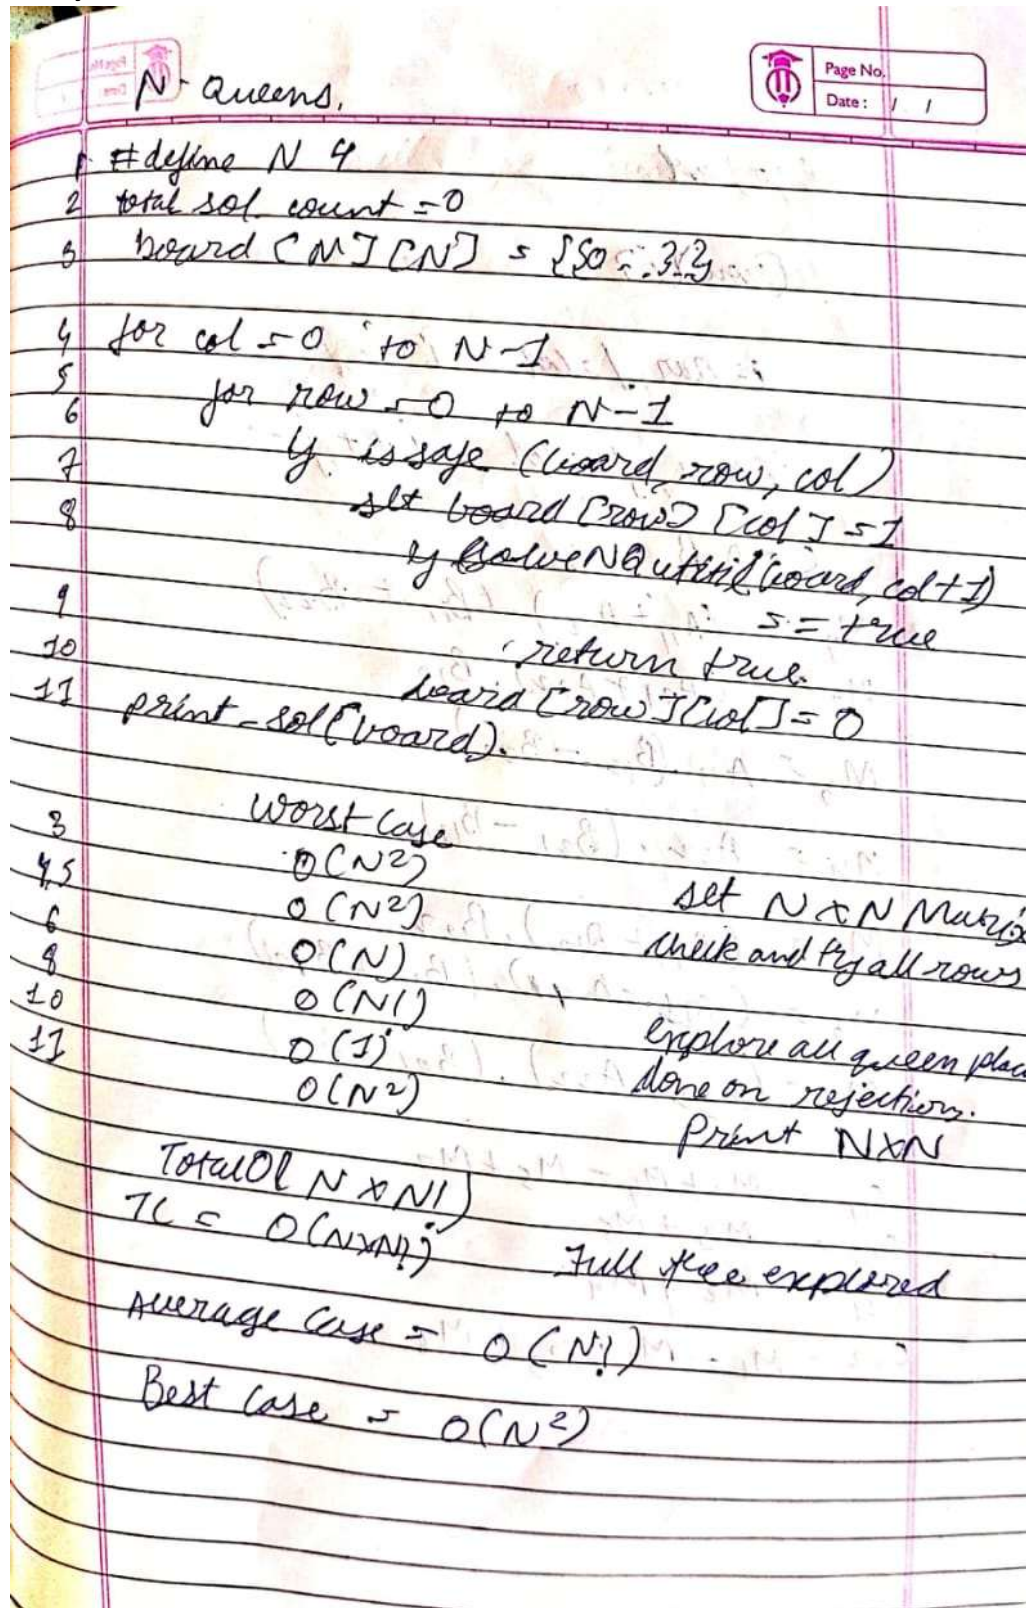 Page No.
Date: / /
N-Queens.
1 #define N 4
2 total sol. count = 0
3 board [N][N] = {{0...}..}
4 for col = 0 to N-1
5 for row = 0 to N-1
6 if issafe (board, row, col)
7 set board [row] [col] = 1
8 if (solveNQutil(board, col+1)
9 == true
10 return true.
11 board [row][col] = 0
print-sol(board).
Worst Case
3 O(N2)
4,5 O(N2) set NxN Matrix
6 O(N) check and try all rows
8 O(N!)
10 O(1) explore all queen plac
11 O(N2) done on rejection.
Print NXN
Total O( N x N!)
TC = O(NxN!) Full tree explored
Average Case = O(N!)
Best Case = O(N2)